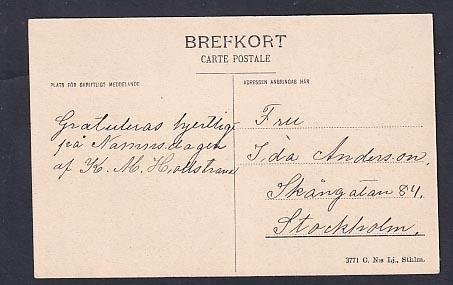 BREFKORT
CARTE POSTALE
PLATS FÖR SKRIFTLIGT MEDDELANDE.
ADRESSEN ANBRINGAS HÄR
Gratuleras hjertligt
på Namnsdagen
af K. M. Hollstrand
Fru
Ida Anderson.
Skångatan 84.
Stockholm.
3771 C. N:s Lj., Sthlm.